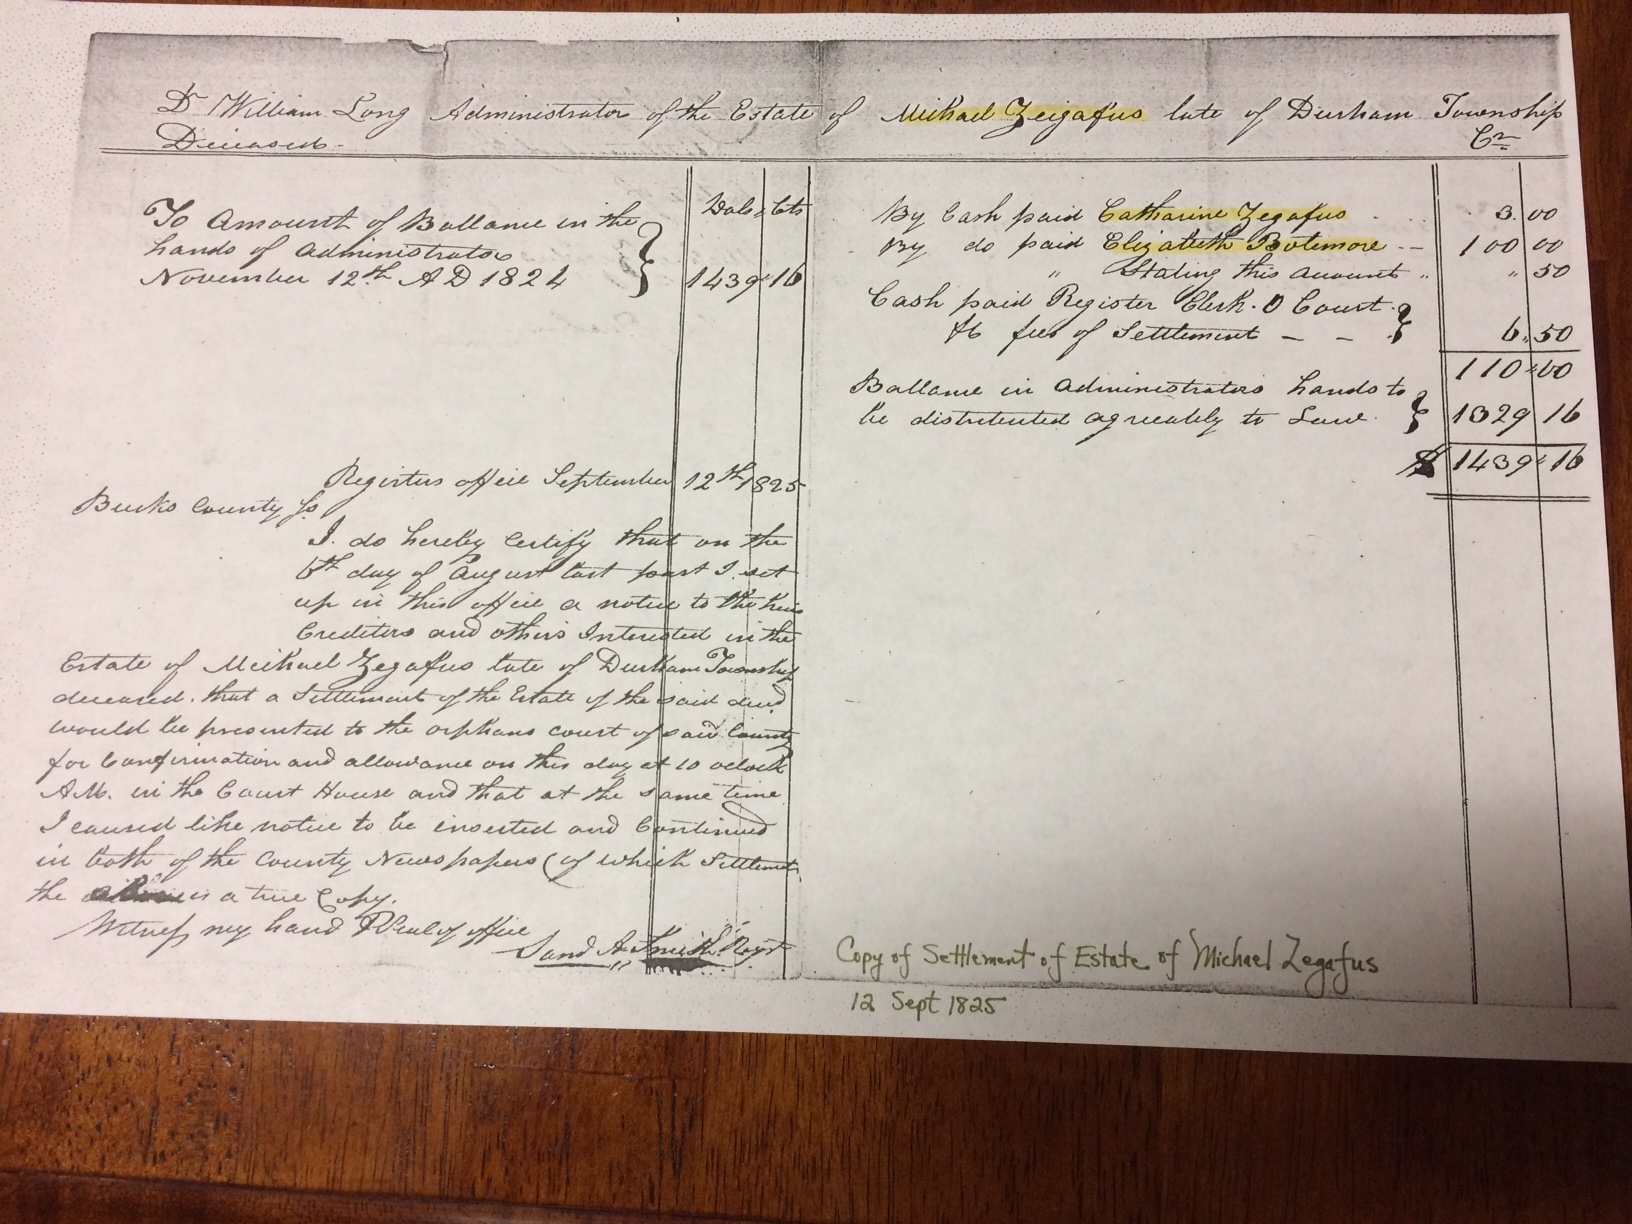 Dr William Long Administrator of the Estate of Michael Zeigafus late of Durham Township
Deceased. Cr
Dols Cts
To Amount of Ballance in the
hands of Administrator
November 12th AD 1824 1439 16
By Cash paid Catharine Zegafus 3.00
By do paid Elizabeth Botemore 100 00
" Stating this Account " " 50
Cash paid Register Clerk O Court
&c fees of Settlement 6.50
110 00
Ballance in Administrators hands to
be distributed agreeably to Law 1329 16
$ 1439 16
Registers office September 12th 1825
Bucks County Ss
I do hereby Certify that on the
6th day of August last past I set
up in this office a notice to the heirs
Creditors and others Interested in the
Estate of Michael Zegafus late of Durham Township
deceased. that a Settlement of the Estate of the said decd
would be presented to the orphans court of said County
for Confirmation and allowance on this day at 10 oclock
A.M. in the Court House and that at the same time
I caused like notice to be inserted and Continued
in both of the County Newspapers (of which Settlemt
the is a true Copy.
Witness my hand & Seal of office
Regr
Copy of Settlement of Estate of Michael Zegafus
12 Sept 1825